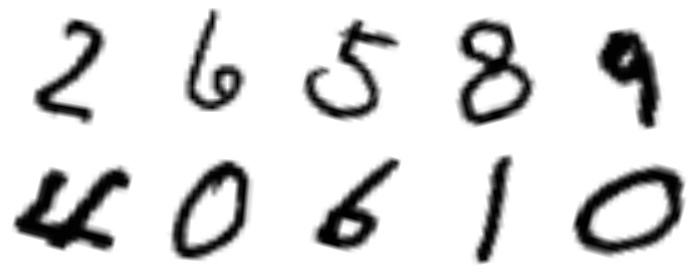 2 6 5 8 9
4 0 6 1 0